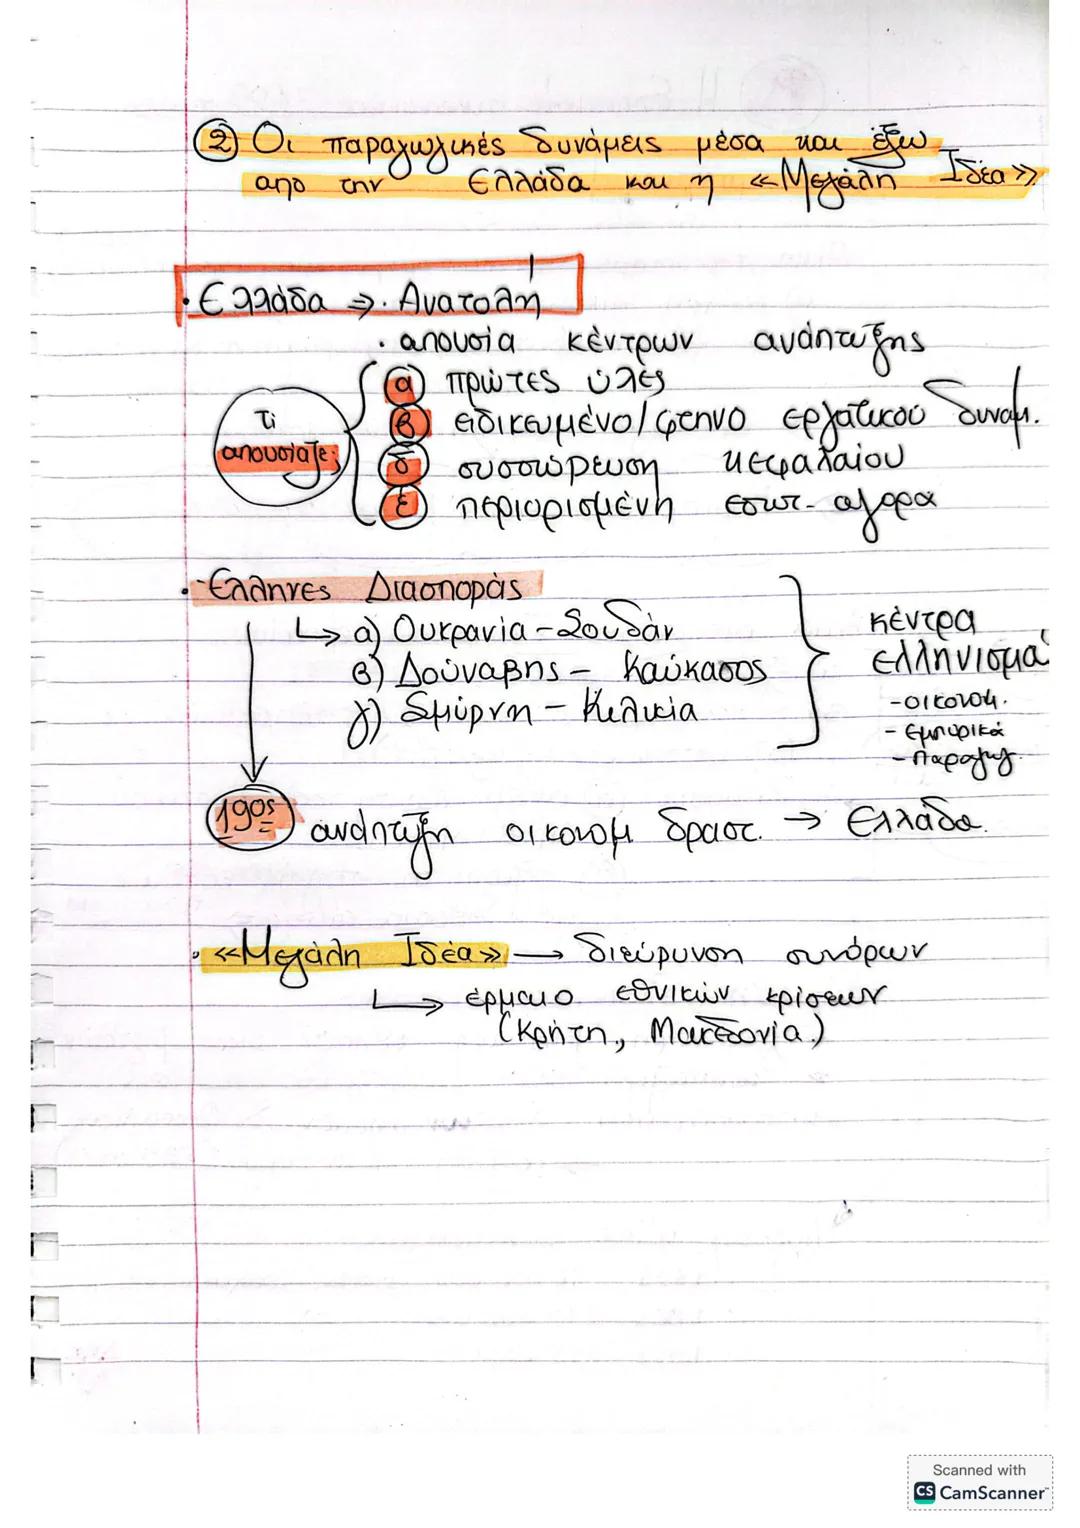 ② Οι παραγωγικές δυνάμεις μέσα και έξω
από την Ελλάδα και η «Μεγάλη Ιδέα»
· Ελλάδα ⇒ · Ανατολή
· απουσία κέντρων ανάπτυξης
Τι απουσίαζε;
α πρώτες ύλες
β ειδικευμένο/φτηνο εργατικού δυναμ.
δ συσσώρευση κεφαλαίου
ε περιορισμένη εσωτ. αγορα
· Έλληνες Διασποράς
↳ α) Ουκρανία - Σουδάν
β) Δούναβης - Καύκασος
γ) Σμύρνη - Κιλικία
κέντρα
ελληνισμού
- οικονομ.
- εμπορικά
- παραγωγ.
19ος ανάπτυξη οικονομ δραστ. → Ελλάδα.
· «Μεγάλη Ιδέα» → διεύρυνση συνόρων
↳ έρμαιο εθνικών κρίσεων
(Κρήτη, Μακεδονία.)
Scanned with
CS CamScanner